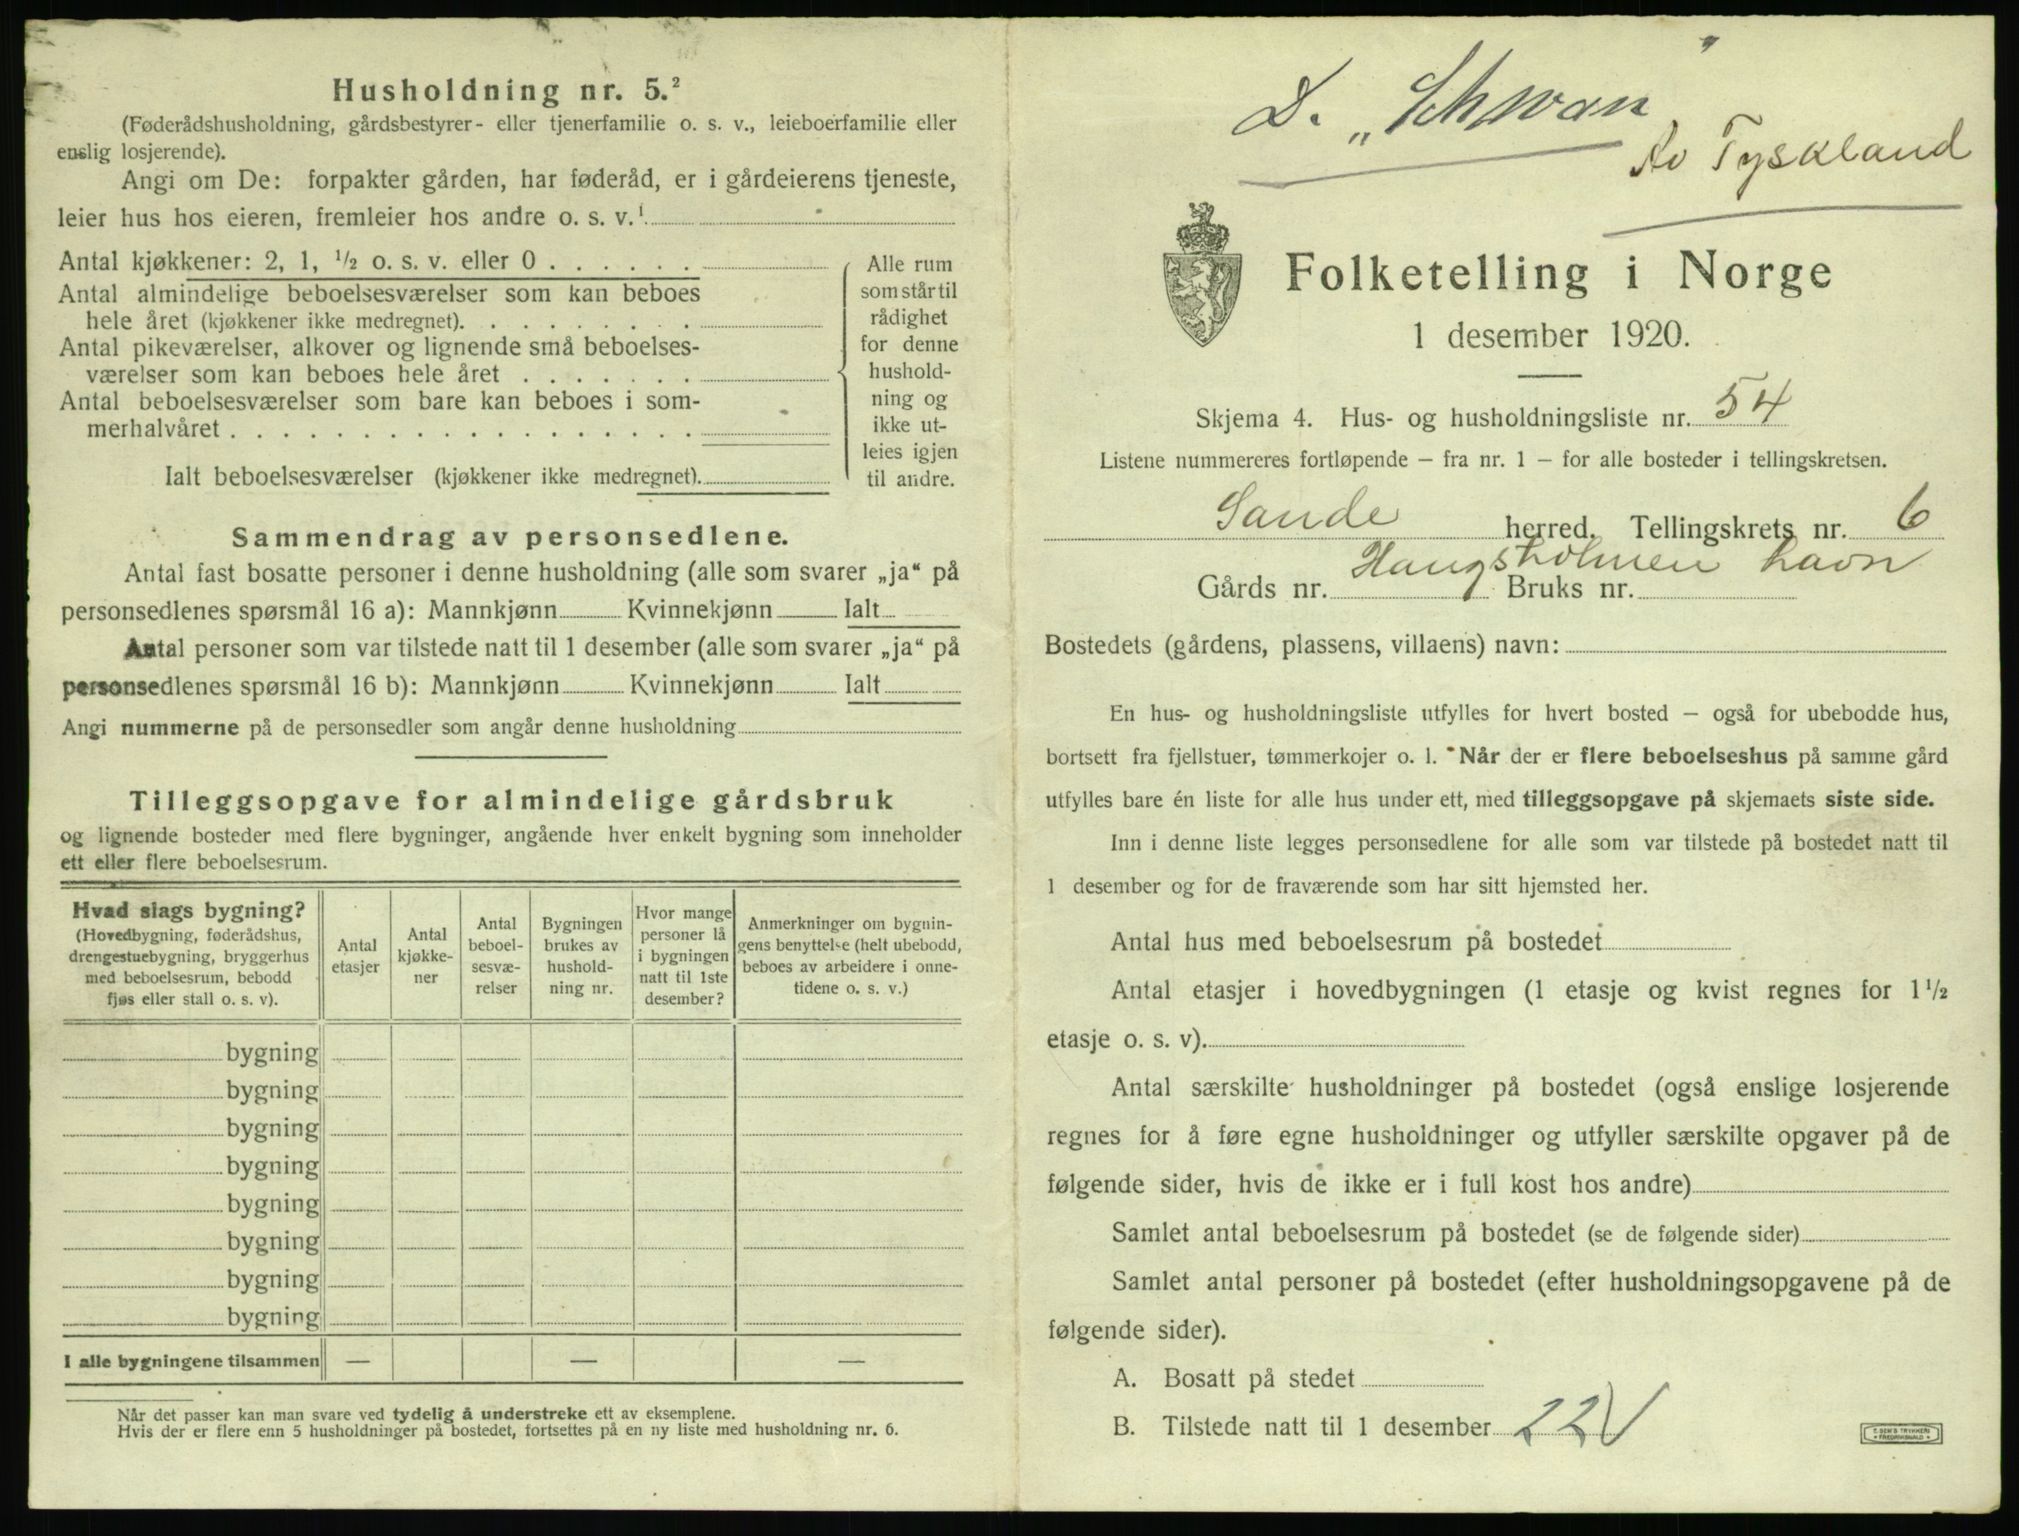 Husholdning nr. 5.²
(Føderådshusholdning, gårdsbestyrer- eller tjenerfamilie o. s. v., leieboerfamilie eller
enslig losjerende).
Angi om De: forpakter gården, har føderåd, er i gårdeierens tjeneste,
leier hus hos eieren, fremleier hos andre o. s. v.¹
Antal kjøkkener: 2, 1, ½ o. s. v. eller 0 . . . . . .
Antal almindelige beboelsesværelser som kan beboes
hele året (kjøkkener ikke medregnet). . . . . . . . .
Antal pikeværelser, alkover og lignende små beboelses-
værelser som kan beboes hele året . . . . . . .
Antal beboelsesværelser som bare kan beboes i som-
merhalvåret . . . . . . . . . . . . . . . . . .
Ialt beboelsesværelser (kjøkkener ikke medregnet).
Alle rum
som står til
rådighet
for denne
hushold-
ning og
ikke ut-
leies igjen
til andre.
Sammendrag av personsedlene.
Antal fast bosatte personer i denne husholdning (alle som svarer „ja“ på
personsedlenes spørsmål 16 a): Mannkjønn Kvinnekjønn Ialt
Antal personer som var tilstede natt til 1 desember (alle som svarer „ja“ på
personsedlenes spørsmål 16 b): Mannkjønn Kvinnekjønn Ialt
Angi nummerne på de personsedler som angår denne husholdning
Tilleggsopgave for almindelige gårdsbruk
og lignende bosteder med flere bygninger, angående hver enkelt bygning som inneholder
ett eller flere beboelsesrum.
Hvad slags bygning?
(Hovedbygning, føderådshus,
drengestuebygning, bryggerhus
med beboelsesrum, bebodd
fjøs eller stall o. s. v).
Antal
etasjer
Antal
kjøkke-
ner
Antal
beboel-
sesvæ-
relser
Bygningen
brukes av
hushold-
ning nr.
Hvor mange
personer lå
i bygningen
natt til 1ste
desember?
Anmerkninger om bygnin-
gens benyttelse (helt ubebodd,
beboes av arbeidere i onne-
tidene o. s. v.)
bygning
bygning
bygning
bygning
bygning
bygning
bygning
bygning
I alle bygningene tilsammen — — —
Når det passer kan man svare ved tydelig å understreke ett av eksemplene.
Hvis der er flere enn 5 husholdninger på bostedet, fortsettes på en ny liste med husholdning nr. 6.
D. „Schwan“
Av Tyskland
Folketelling i Norge
1 desember 1920.
Skjema 4. Hus- og husholdningsliste nr. 54
Listene nummereres fortløpende – fra nr. 1 – for alle bosteder i tellingskretsen.
Sande herred. Tellingskrets nr. 6
Haugsholmen havn
Gårds nr. Bruks nr.
Bostedets (gårdens, plassens, villaens) navn:
En hus- og husholdningsliste utfylles for hvert bosted – også for ubebodde hus,
bortsett fra fjellstuer, tømmerkojer o. l. Når der er flere beboelseshus på samme gård
utfylles bare én liste for alle hus under ett, med tilleggsopgave på skjemaets siste side.
Inn i denne liste legges personsedlene for alle som var tilstede på bostedet natt til
1 desember og for de fraværende som har sitt hjemsted her.
Antal hus med beboelsesrum på bostedet
Antal etasjer i hovedbygningen (1 etasje og kvist regnes for 1½
etasje o. s. v).
Antal særskilte husholdninger på bostedet (også enslige losjerende
regnes for å føre egne husholdninger og utfyller særskilte opgaver på de
følgende sider, hvis de ikke er i full kost hos andre)
Samlet antal beboelsesrum på bostedet (se de følgende sider)
Samlet antal personer på bostedet (efter husholdningsopgavene på de
følgende sider).
A. Bosatt på stedet
B. Tilstede natt til 1 desember 22 V
E. SEM'S TRYKKERI
FREDRIKSHALD